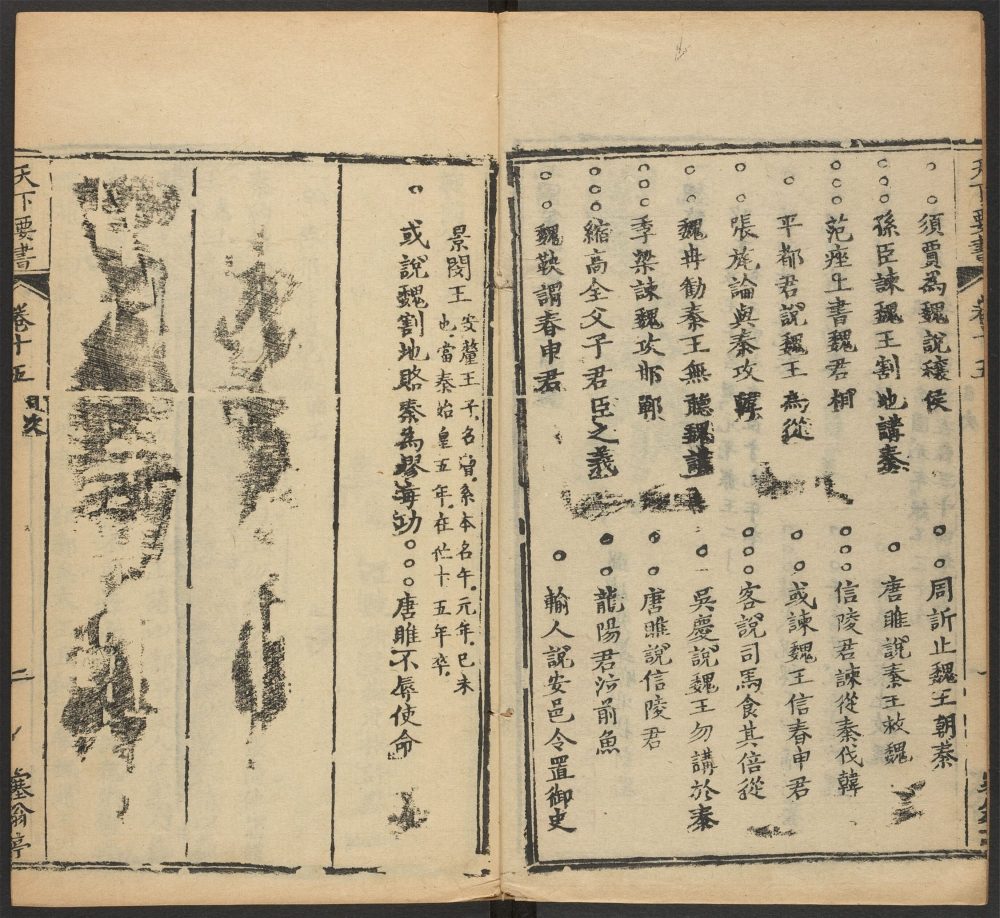 天下要書
須賈為魏說穰侯 周訢止魏王朝秦
孫臣諫魏王割地講秦 唐雎說秦王救魏
范痤上書魏君相 信陵君諫從秦伐韓
平都君說魏王為從 或諫魏王信春申君
張旄論與秦攻韓 客說司馬食其倍從
魏冉勸秦王無聽魏講 吳慶說魏王勿講於秦
季梁諫魏攻邯鄲 唐雎說信陵君
縮高全父子君臣之義 龍陽君泣前魚
魏鞅謂春申君 輸人說安邑令置御史
景閔王 安釐王子名增系本名午元年已未
也當秦始皇五年在位十五年卒
或說魏割地賂秦為嫪毐功 唐雎不辱使命
天下要書 卷十五 目次 二 塞翁亭